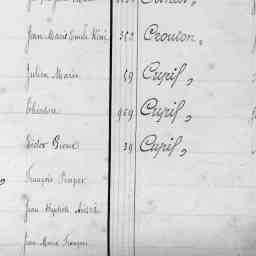 Jean Marie Emile René 352 Crouton,
Julien Marie 69 Cupif,
Théodore 969 Cupif,
Victor Pierre 39 Cupif,
François Prosper
Jean Baptiste André
Jean Marie François